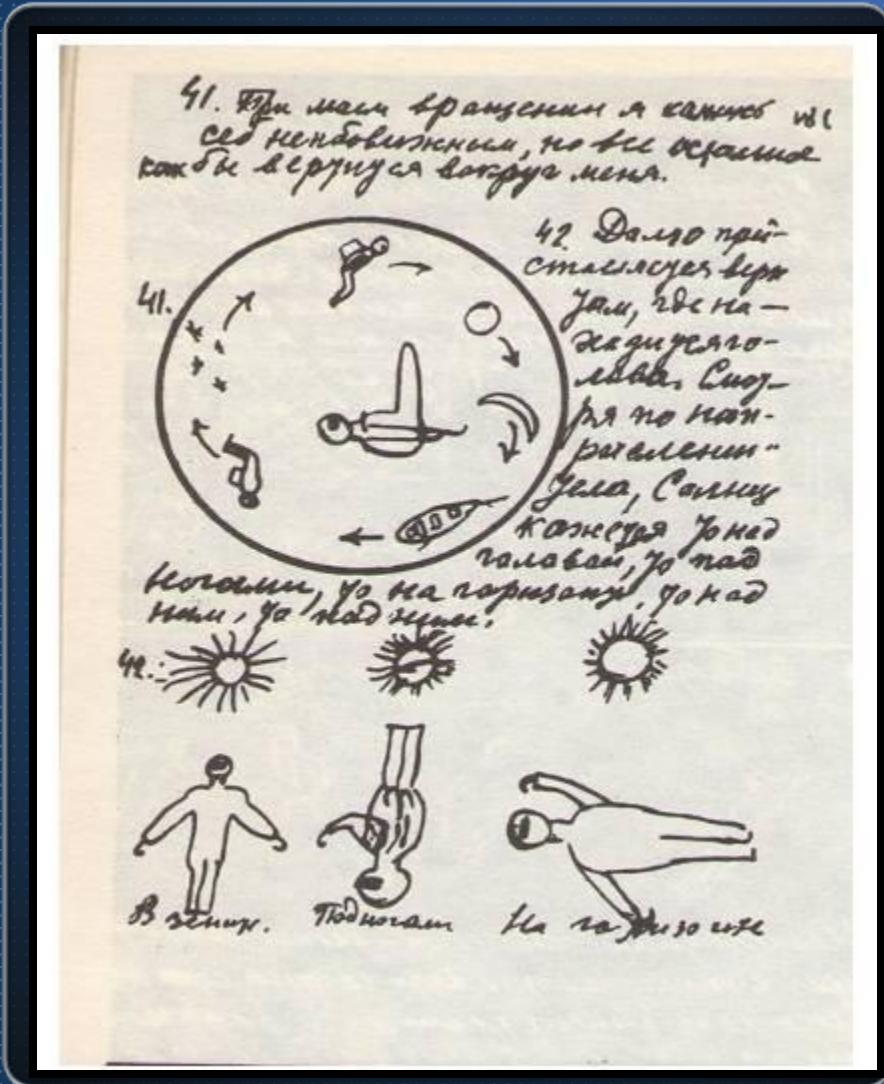 41. При моем вращении я кажусь
себе неподвижным, но все остальное
как бы вертится вокруг меня.
42 Далее пред-
ставляется верх
там, где на-
ходится го-
лова. Смот-
ря по нап-
равлению
тела, Солнце
кажется то над
головой, то под
ногами, то на горизонте, то над
ним, то под ним.
41.
42.
В зените.
Под ногами
На горизонте